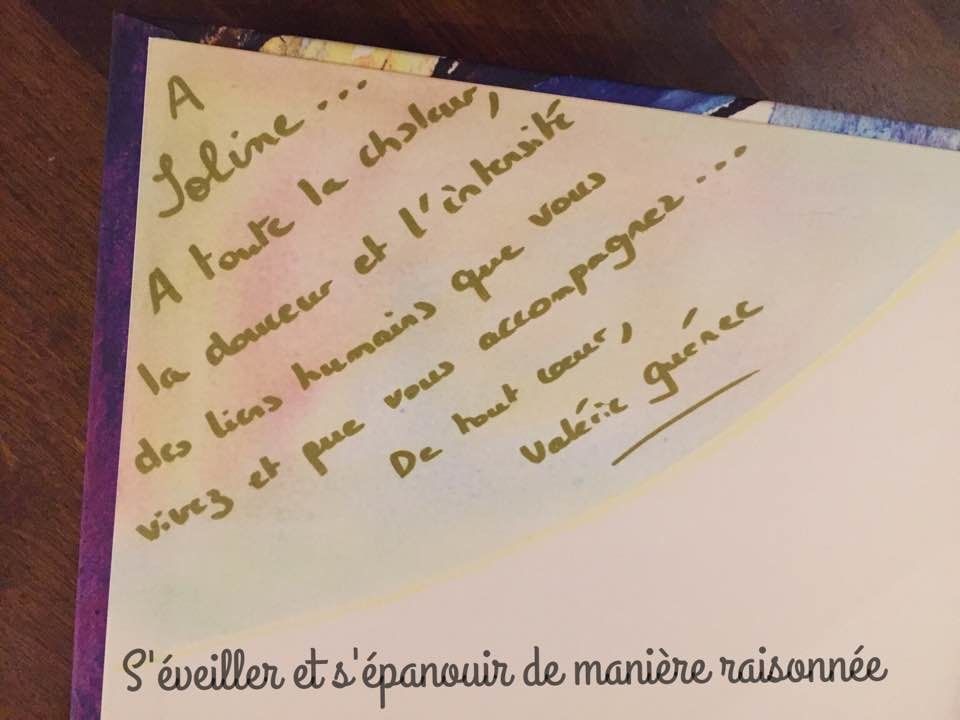 A
Soline...
A toute la chaleur,
la douceur et l'intensité
des liens humains que vous
vivez et que vous accompagnez...
De tout cœur,
Valérie Guénec
S'éveiller et s'épanouir de manière raisonnée